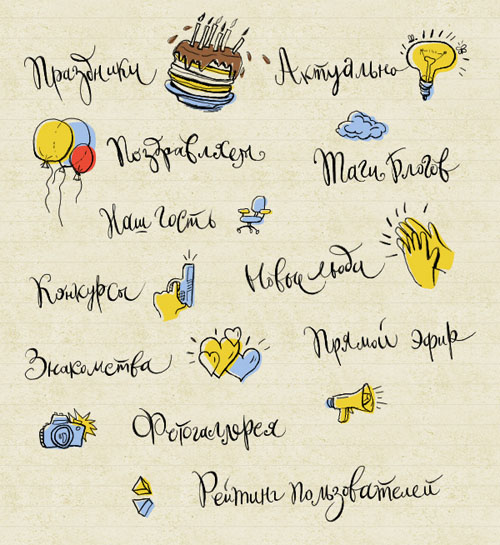 Праздники
Актуально
Поздравляем
Таги Блогов
Наш гость
Новые люди
Конкурсы
Прямой эфир
Знакомства
Фотогаллерея
Рейтинг пользователей